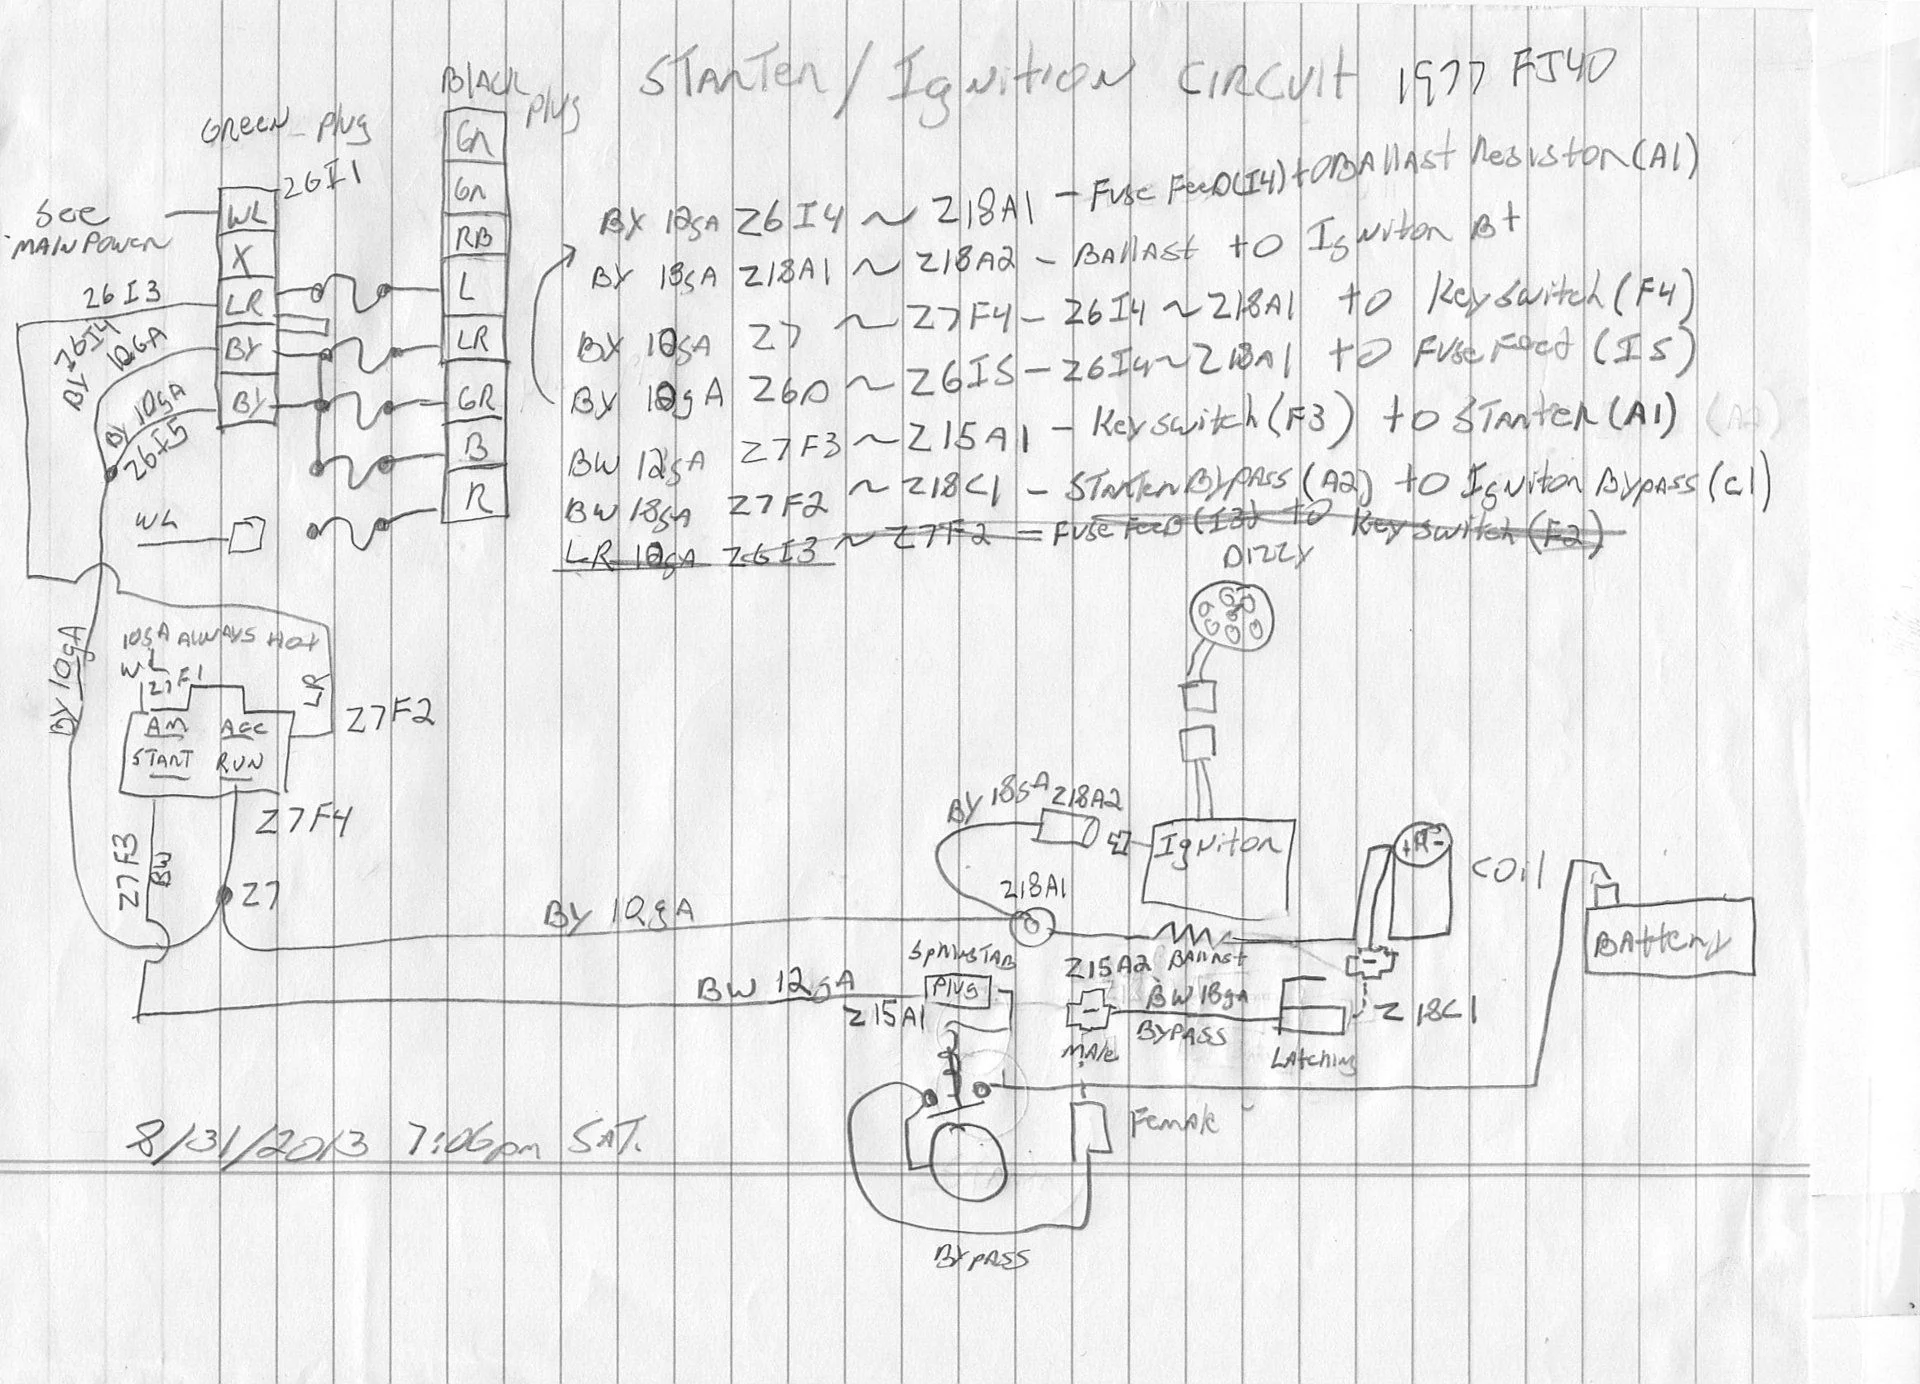 STARTER/IGNITION CIRCUIT 1977 FJ40
BLACK Plug
GREEN Plug
26I1
Gn
Gn
RB
L
LR
GR
B
R
WL
X
LR
BY
BY
SEE MAIN POWER
26I3
BY 26I4 10GA
BY 10gA
26I5
WL
BY 12gA 26I4 ~ Z18A1 - FUSE FEED(I4) to BALLAST Resistor(A1)
BY 18gA Z18A1 ~ Z18A2 - BALLAST to Ignitor B+
BY 10gA Z7 ~ Z7F4 - 26I4 ~ Z18A1 to Key switch (F4)
BY 10gA Z6D ~ Z6I5 - 26I4 ~ Z18A1 to FUSE Feed (I5)
BW 12gA Z7F3 ~ Z15A1 - Key switch (F3) to STARTER (A1) (A2)
BW 18gA Z7F2 ~ Z18C1 - STARTER BYPASS (A2) to Ignitor BYPASS (C1)
LR 10gA Z6I3 ~ Z7F2 = FUSE FEED (I3) to Key switch (F2)
DIZZY
10gA ALWAYS HOT
WL
Z7F1
LR
Z7F2
BY 10gA
AM ACC
START RUN
Z7F4
Z7F3
BW
Z7
BY 18gA Z18A2
Ignitor
COIL
+ -
Z18A1
BY 10gA
BALLAST
Battery
BW 12gA
Z15A1
Plug
Z15A2
BW 18gA
BYPASS
Z18C1
MAle
LAtching
Female
8/31/2013 7:06pm SAT.
BYPASS